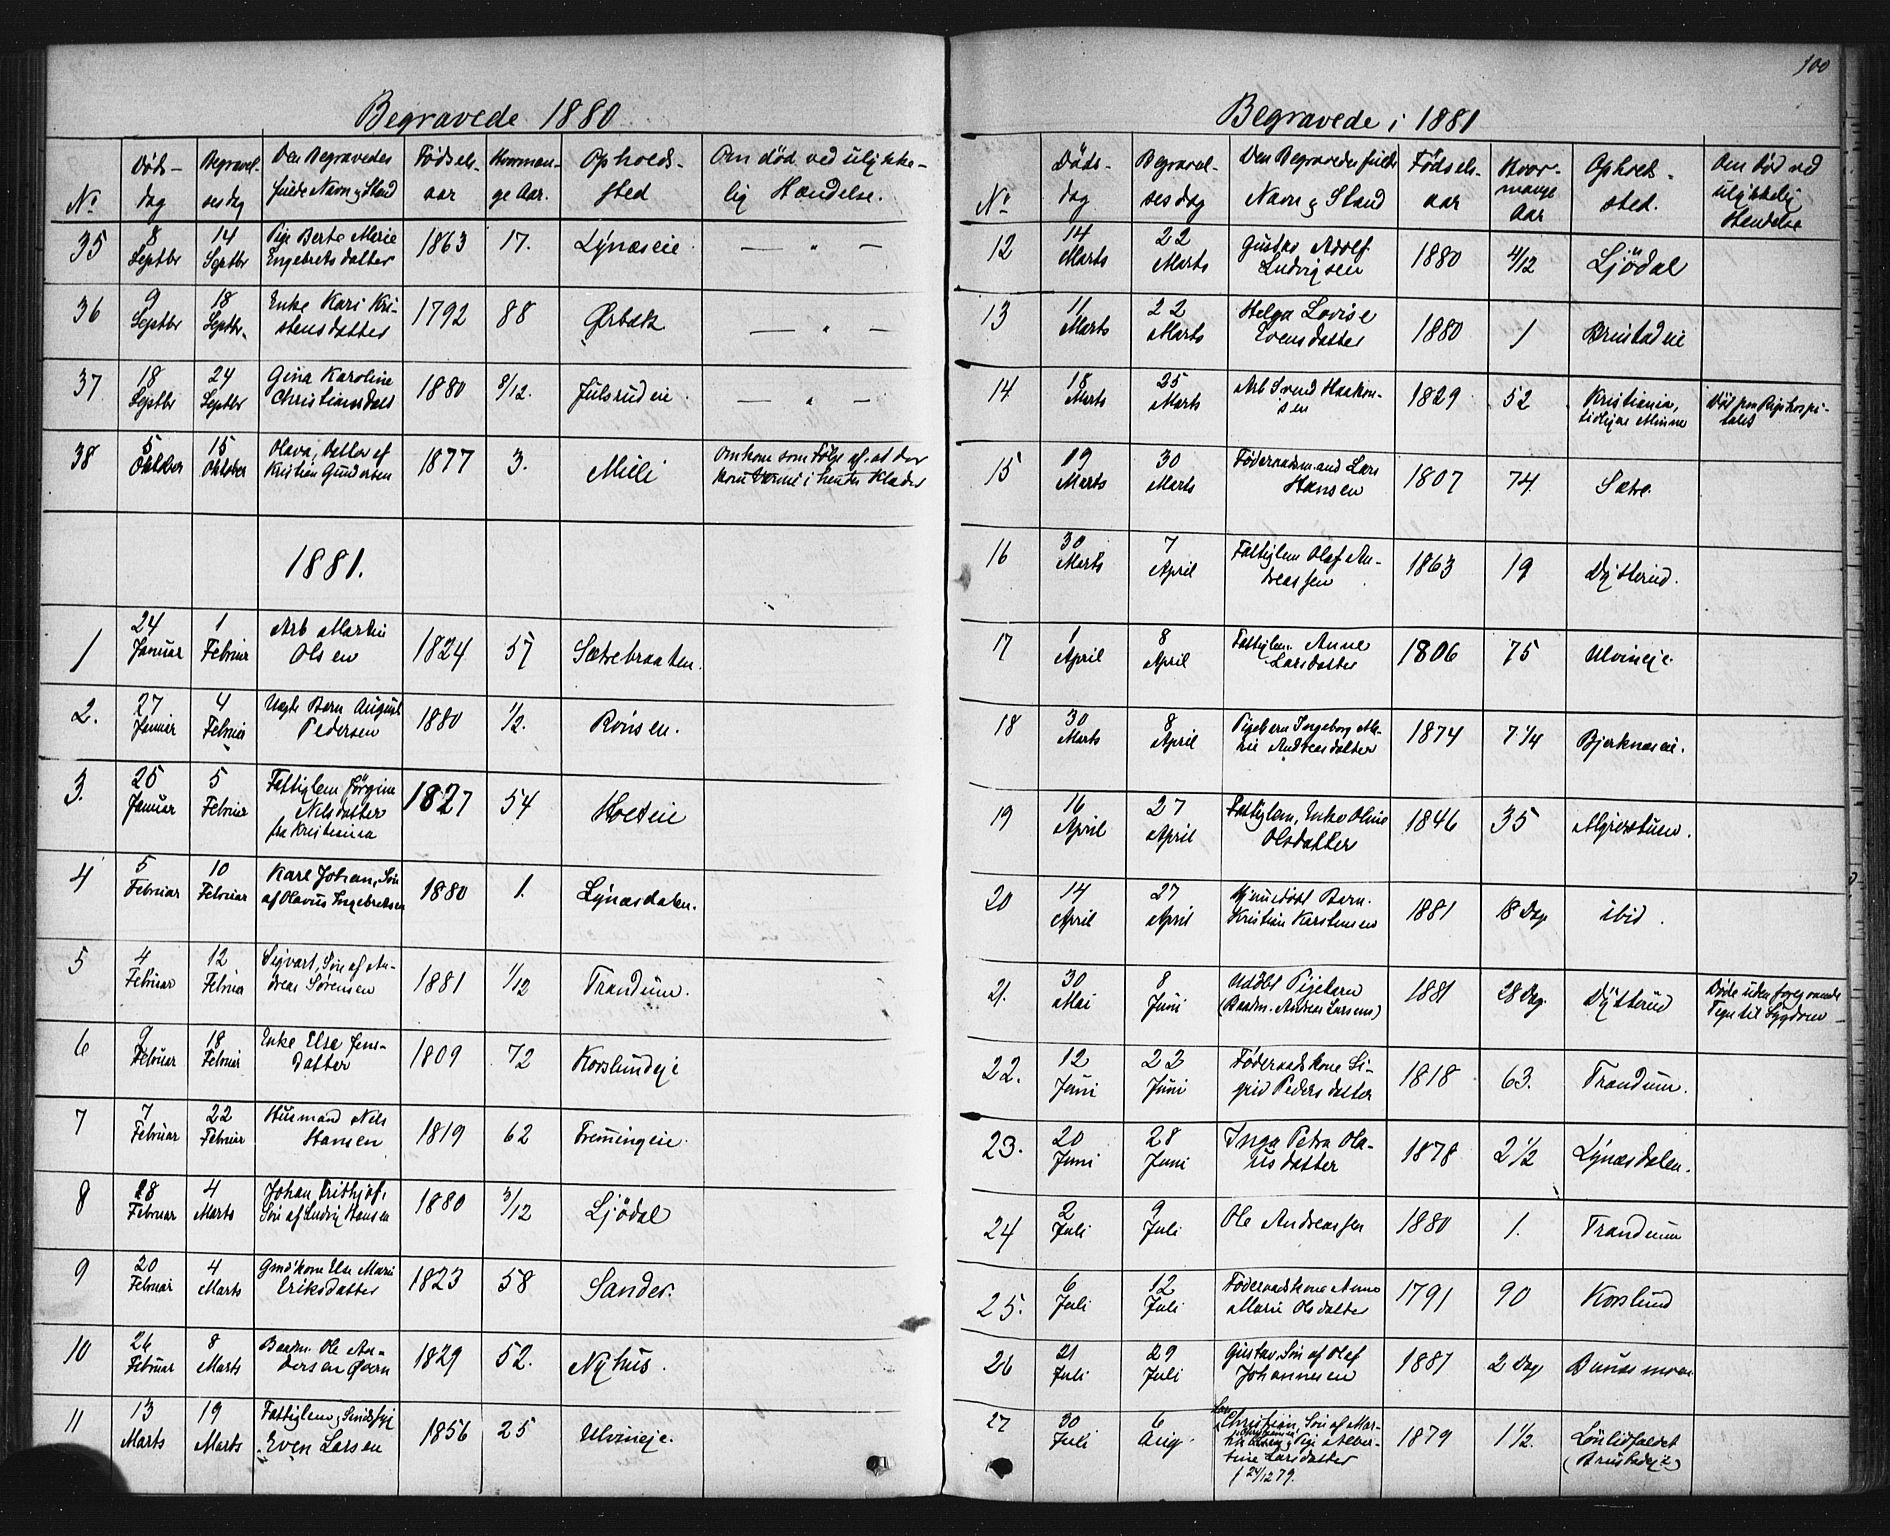 100
Begravede 1880
No | Døds-dag | Begravel-sesdag | Den Begravedes fulde Navn og Stand | Fødsels-aar | Hvorman-ge Aar. | Opholds-sted | Om død ved ulykke-lig Hændelse.
35 | 8 Septbr | 14 Septbr | Pige Berte Marie Engebretsdatter | 1863 | 17. | Lynæseie | — " —
36 | 9 Septbr | 18 Septbr. | Enke Kari Kri-stensdatter | 1792 | 88 | Ørbæk | — " —
37 | 18 Septbr | 24 Septbr | Gina Karoline Christiansdatt | 1880 | 8/12. | Julsrudeie | — " —
38 | 5 Oktober | 15 Oktober | Olava, Datter af Kristian Gundersen | 1877 | 3. | Milli | Omkom som Følge af at der kom i hendes Klæder
1881.
1 | 24 Januar | 1 Februar | Arb Martin Olsen | 1824 | 57 | Sætrebraaten.
2. | 27 Januar | 4 Februar | Uægte Barn August Pedersen | 1880 | 1/2. | Rönsen.
3. | 25 Januar | 5 Februar | Fattiglem Jørgine Nilsdatter fra Kristiania | 1827 | 54 | Holteie
4 | 5 Februar | 10 Februar | Karl Johan, Søn af Olavus Ingebretsen | 1880 | 1. | Lynæsdalen.
5 | 4 Februar | 12 Februar | Sigvart, Søn af An-dreas Sørensen | 1881 | 1/12 | Trandum.
6 | 9 Februar | 18 Februar | Enke Else Jens-datter | 1809 | 72 | Korslundeje
7 | 7 Februar | 22 Februar | Husmand Nils Hansen | 1819 | 62 | Fremingeie.
8 | 28 Februar | 4 Marts | Johan Frithjof, Søn af Ludvig Hansen | 1880 | 3/12 | Ljödal
9 | 20 Februar | 4 Marts | Gmdkone Else Marie Eriksdatter | 1823 | 58 | Sander.
10 | 26 Februar | 8 Marts | Baadm. Ole An-dersen Øvern | 1829 | 52. | Nyhus.
11 | 13 Marts | 19 Marts | Fattiglem, Sindssyg Even Larsen | 1856 | 25 | Ulvineje.
Begravede i 1881
No | Døds-dag | Begravel-sesdag | Den Begravedes fulde Navn og Stand | Fødsels-aar | Hvor-mange Aar | Opholds-sted. | Om død ved ulykkelig Hændelse
12 | 14 Marts | 22 Marts | Gustav Adolf Ludvigsen | 1880 | 4/12 | Ljödal
13 | 11 Marts | 22 Marts | Helga Lovise Evensdatter | 1880 | 1 | Brustadeie
14 | 18 Marts | 25 Marts | Arb Svend Haakon-sen | 1829 | 52 | Kristiania, tidligere Minne | Død paa Rigshospi-talet
15 | 19 Marts | 30 Marts | Föderaadsmand Lars Hansen | 1807 | 74. | Sætre.
16 | 30 Marts | 7 April | Fattiglem Olaf An-dreassen | 1863 | 19 | Dytterud.
17 | 1 April | 8 April | Fattiglem. Anne Larsdatter | 1806 | 75 | Ulvineje.
18 | 30 Marts | 8 April | Pigebarn Ingeborg Ma-rie Andreasdatter | 1874 | 7 1/4 | Bjerknæseie.
19 | 16 April | 27 April | Fattiglem, Enke Oline Olsdatter | 1846 | 35
20 | 14 April | 27 April | Hjemmedöbt Barn. Kristian Karstensen | 1881 | 18 Dage | ibid.
21. | 30 Mai | 8 Juni | Udöbt Pigebarn (Baadm. Andreas Larsens) | 1881 | 28 Dag. | Dytterud | Döde uden foregaaende Tegn til Sygdom
22. | 12 Juni | 22 Juni | Föderaadskone Si-grid Pedersdatter | 1818 | 63. | Trandum.
23. | 20 Juni | 28 Juni | Inga Petra Ola-vsdatter | 1878 | 2 1/2 | Lynæsdalen.
24 | 2 Juli | 9 Juli | Ole Andreassen | 1880 | 1. | Trandum
25. | 6 Juli | 12 Juli | Föderaadskone Anne Marie Olsdatter | 1791 | 90 | Korslund
26 | 21 Juli | 29 Juli | Gustav, Søn af Olaf Johannesen | 1881 | 2 Dag | Bunæsmoen
27 | 30 Juli | 6 Aug. | Lars Christian, Søn af Mar- og Pige Alber-tine Larsdatter f 24/12 79. | 1879 | 1 1/2.